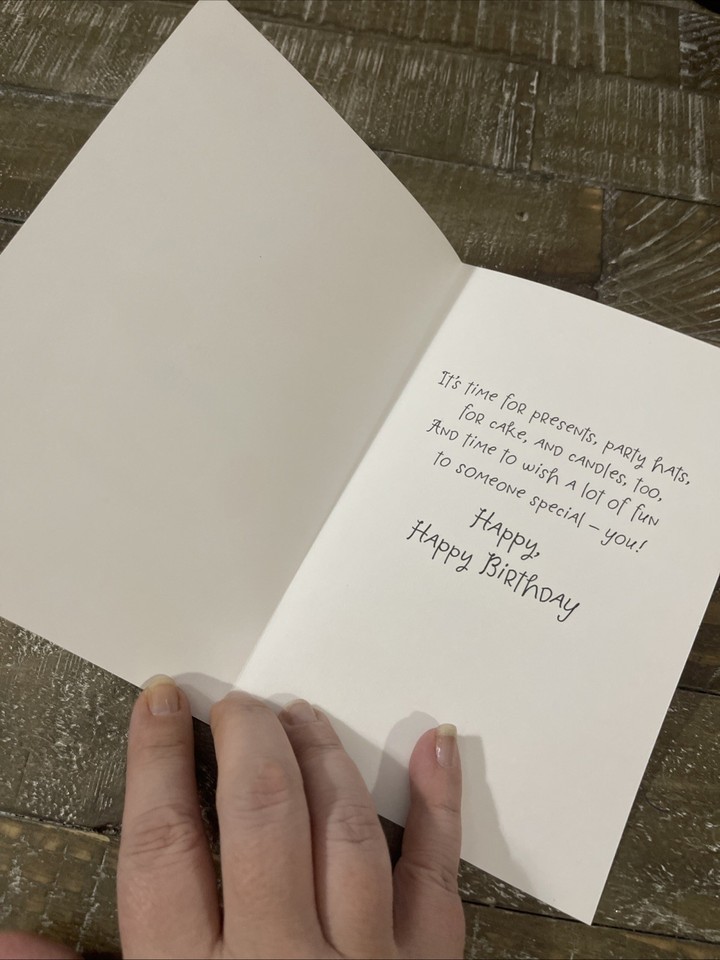 It's time for presents, party hats,
for cake, and candles, too,
And time to wish a lot of fun
to someone special – you!
Happy,
Happy Birthday